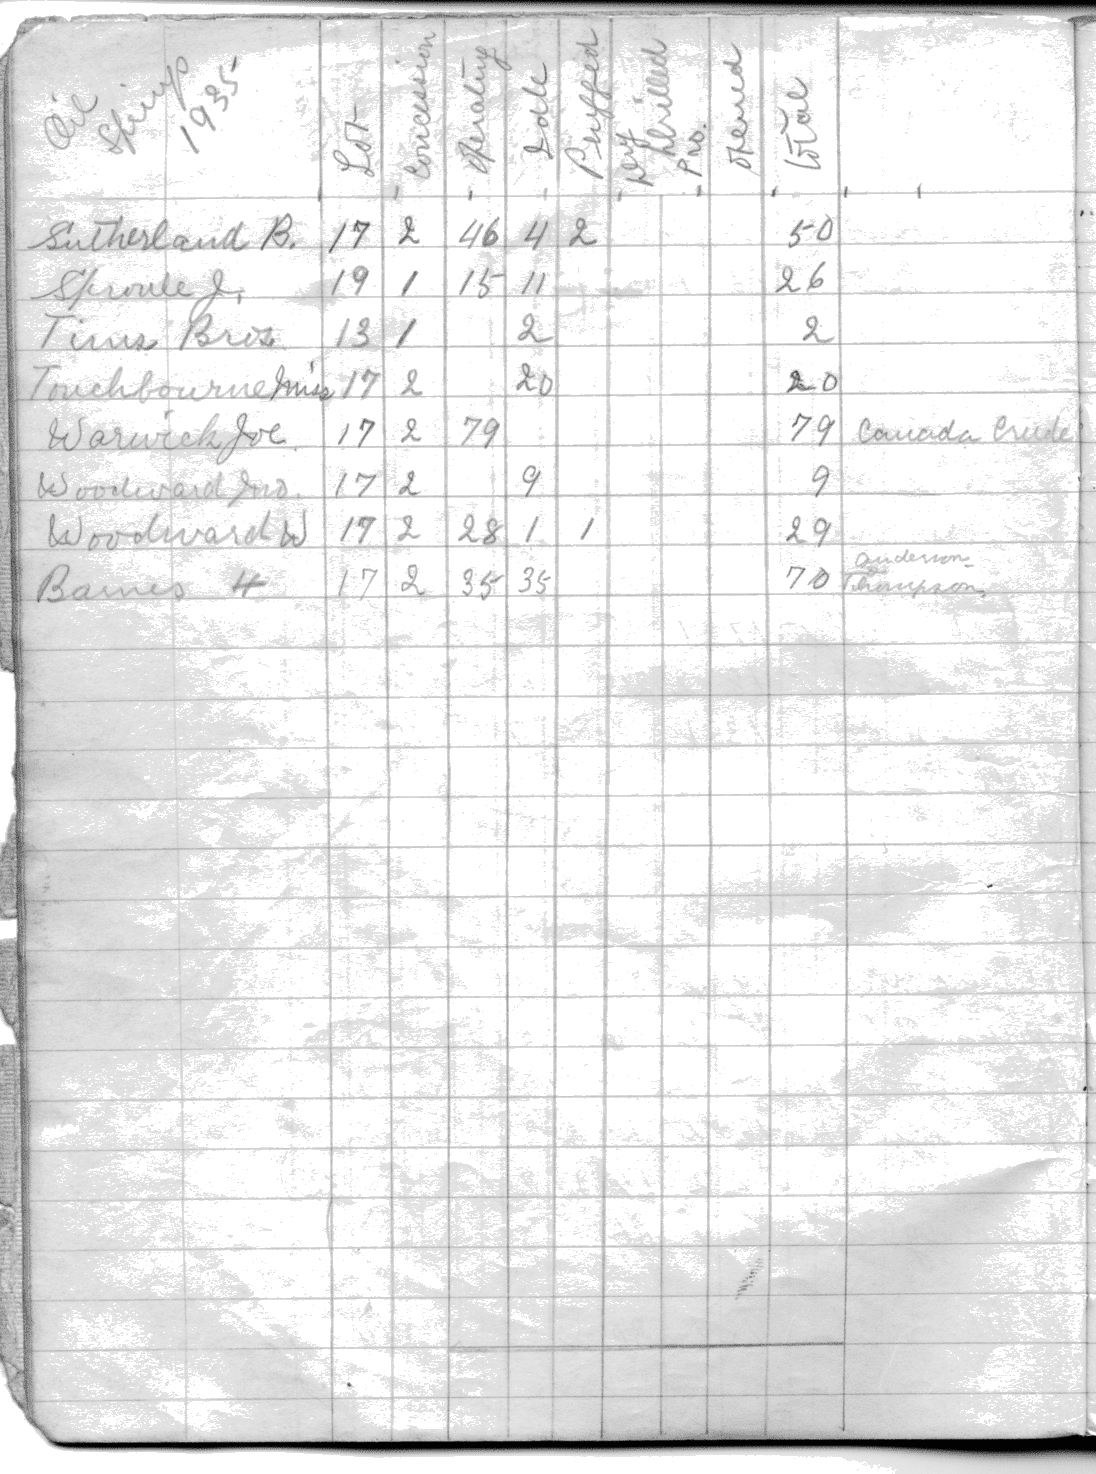 Oil Springs 1935
Lot Concession Operating Idle Plugged Dry Drilled Pro. Opened Total
Sutherland B. 17 2 46 4 2 50
Sproule J. 19 1 15 11 26
Tims Bros. 13 1 2 2
Touchbourne Miss 17 2 20 20
Warwick Joe 17 2 79 79 Canada Crude
Woodward Jno. 17 2 9 9
Woodward W 17 2 28 1 1 29
Barnes 4 17 2 35 35 70 Anderson
Thompson